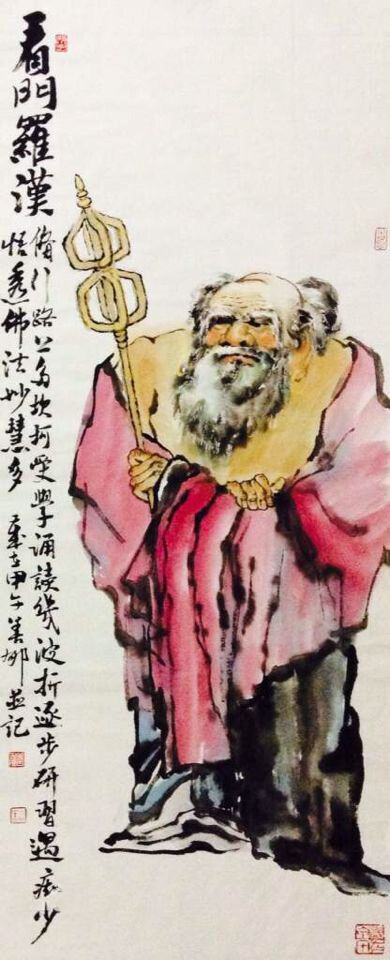 看門羅漢
脩行路上多坎坷受學誦讀幾波折逐步研習遇痴少
悟透佛法妙慧多 歲在甲午美娜並記